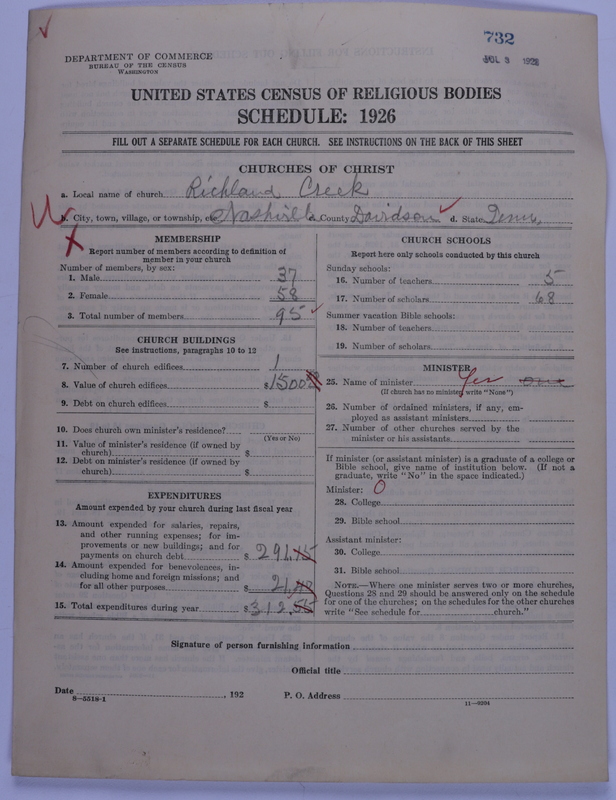 732
JUL 3 1928
DEPARTMENT OF COMMERCE
BUREAU OF THE CENSUS
WASHINGTON
UNITED STATES CENSUS OF RELIGIOUS BODIES
SCHEDULE: 1926
FILL OUT A SEPARATE SCHEDULE FOR EACH CHURCH. SEE INSTRUCTIONS ON THE BACK OF THIS SHEET
CHURCHES OF CHRIST
a. Local name of church Richland Creek
b. City, town, village, or township, etc. Nashville c. County Davidson d. State Tenn.
MEMBERSHIP
Report number of members according to definition of
member in your church
Number of members, by sex:
1. Male 37
2. Female 58
3. Total number of members 95
CHURCH BUILDINGS
See instructions, paragraphs 10 to 12
7. Number of church edifices 1
8. Value of church edifices $1500
9. Debt on church edifices $
10. Does church own minister's residence?
(Yes or No)
11. Value of minister's residence (if owned by
church) $
12. Debt on minister's residence (if owned by
church) $
EXPENDITURES
Amount expended by your church during last fiscal year
13. Amount expended for salaries, repairs,
and other running expenses; for im-
provements or new buildings; and for
payments on church debt $ 291.15
14. Amount expended for benevolences, in-
cluding home and foreign missions; and
for all other purposes $ 21.
15. Total expenditures during year $312.55
CHURCH SCHOOLS
Report here only schools conducted by this church
Sunday schools:
16. Number of teachers 5
17. Number of scholars 68
Summer vacation Bible schools:
18. Number of teachers
19. Number of scholars
MINISTER
25. Name of minister Yes one
(If church has no minister, write "None")
26. Number of ordained ministers, if any, em-
ployed as assistant ministers
27. Number of other churches served by the
minister or his assistants
If minister (or assistant minister) is a graduate of a college or
Bible school, give name of institution below. (If not a
graduate, write "No" in the space indicated.)
Minister: 0
28. College
29. Bible school
Assistant minister:
30. College
31. Bible school
NOTE.—Where one minister serves two or more churches,
Questions 28 and 29 should be answered only on the schedule
for one of the churches; on the schedules for the other churches
write "See schedule for church."
Signature of person furnishing information
Official title
Date , 192 P. O. Address
8—5518-1
11—9204